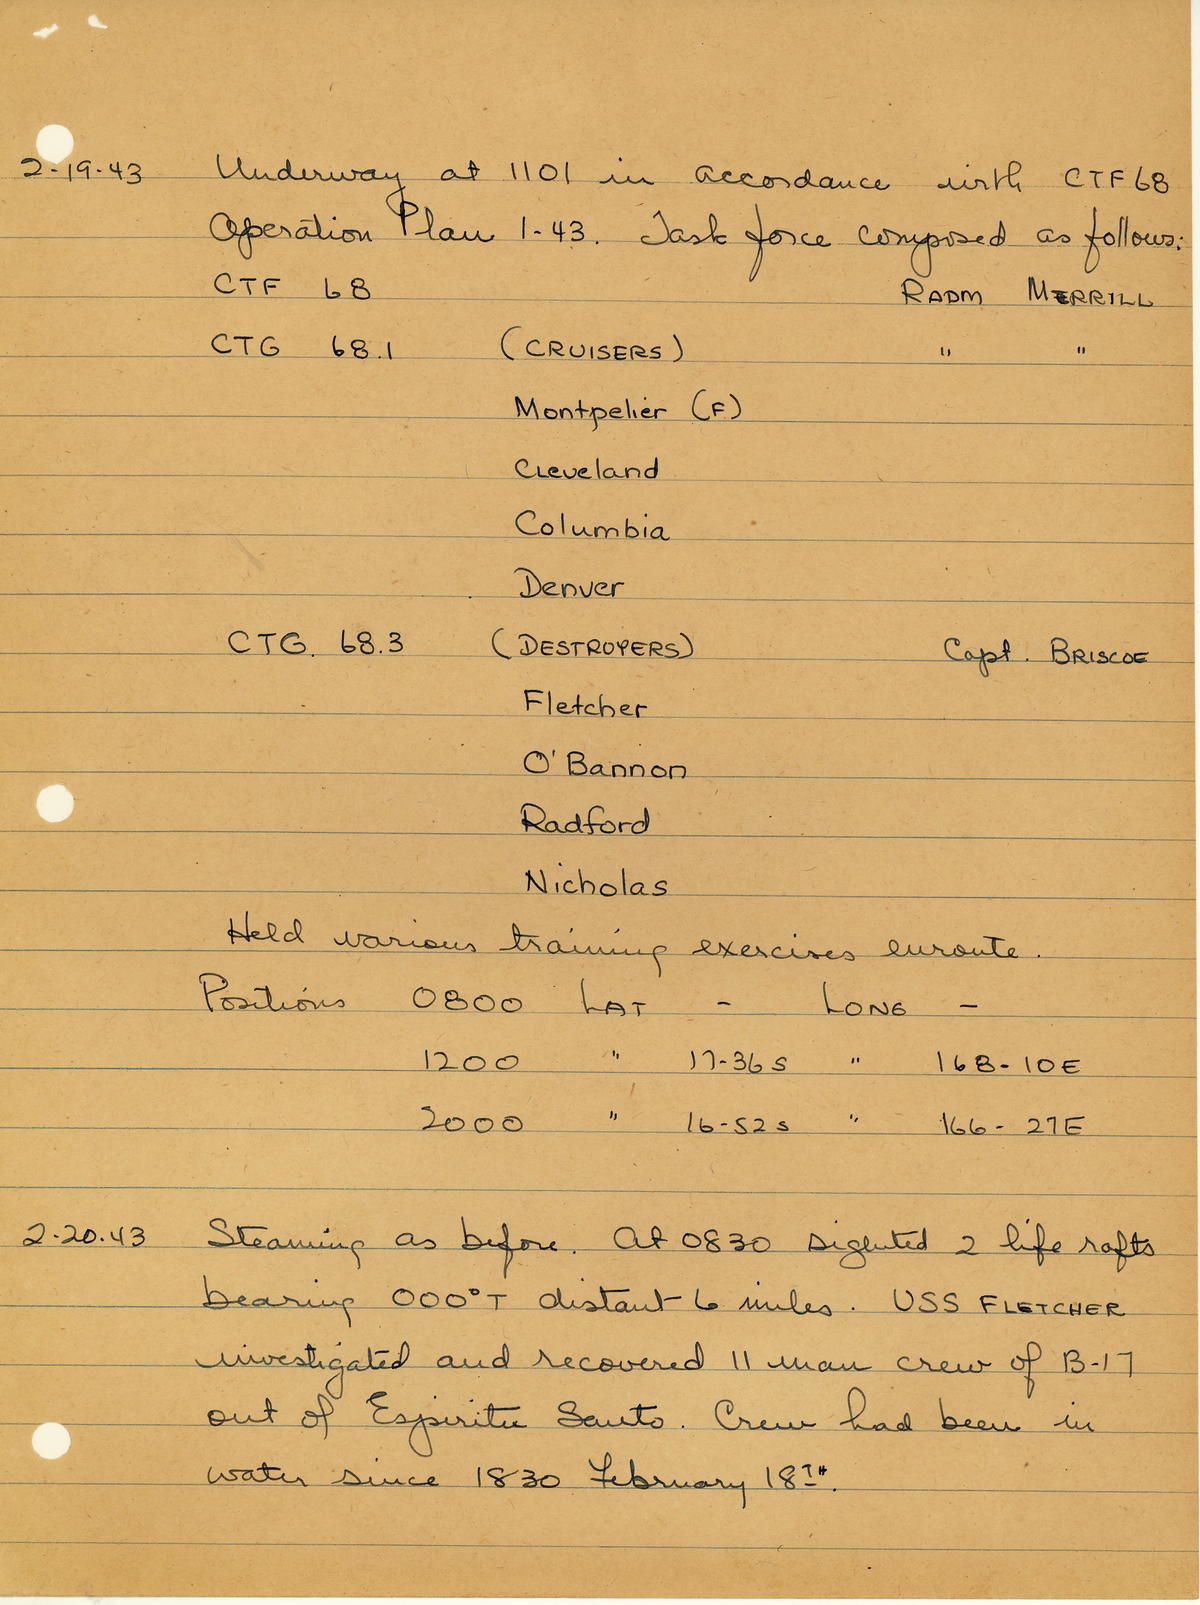 2-19-43 Underway at 1101 in accordance with CTF 68
Operation Plan 1-43. Task force composed as follows:
CTF 68 RADM MERRILL
CTG 68.1 (CRUISERS) " "
Montpelier (F)
Cleveland
Columbia
Denver
CTG. 68.3 (DESTROYERS) Capt. BRISCOE
Fletcher
O'Bannon
Radford
Nicholas
Held various training exercises enroute.
Positions 0800 LAT - LONG -
1200 " 17-36 S " 168-10E
2000 " 16-52 S " 166-27E
2-20-43 Steaming as before. At 0830 sighted 2 life rafts
bearing 000°T distant 6 miles. USS FLETCHER
investigated and recovered 11 man crew of B-17
out of Espiritu Santo. Crew had been in
water since 1830 February 18TH.